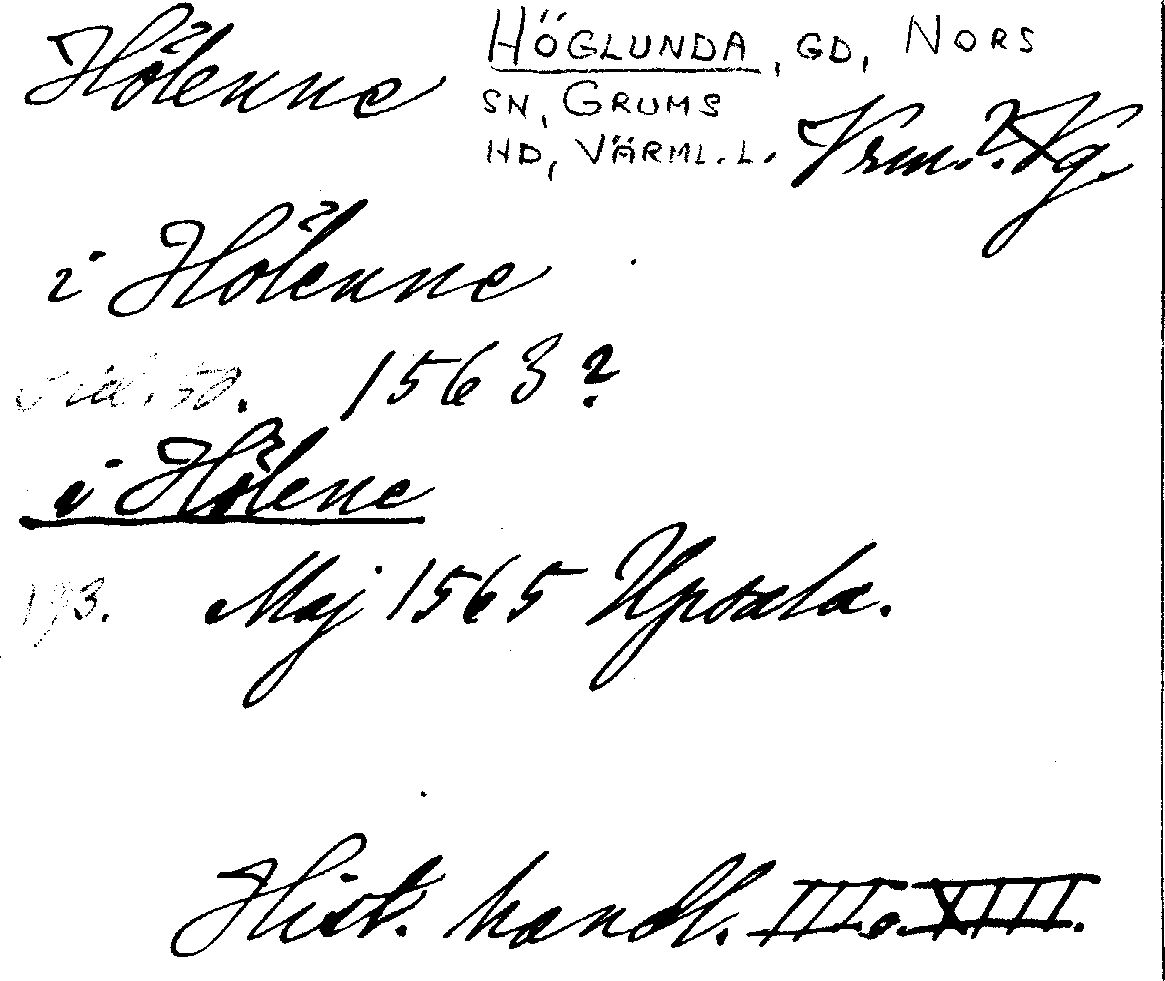 Hölenne HÖGLUNDA, GD, NORS
SN, GRUMS
HD, VÄRML.L. Vrm.? Vg.
i Hölenne
sid. 50. 1563?
i Hölene
193. Maj 1565 Upsala.
Hist. handl. III o. XIII.